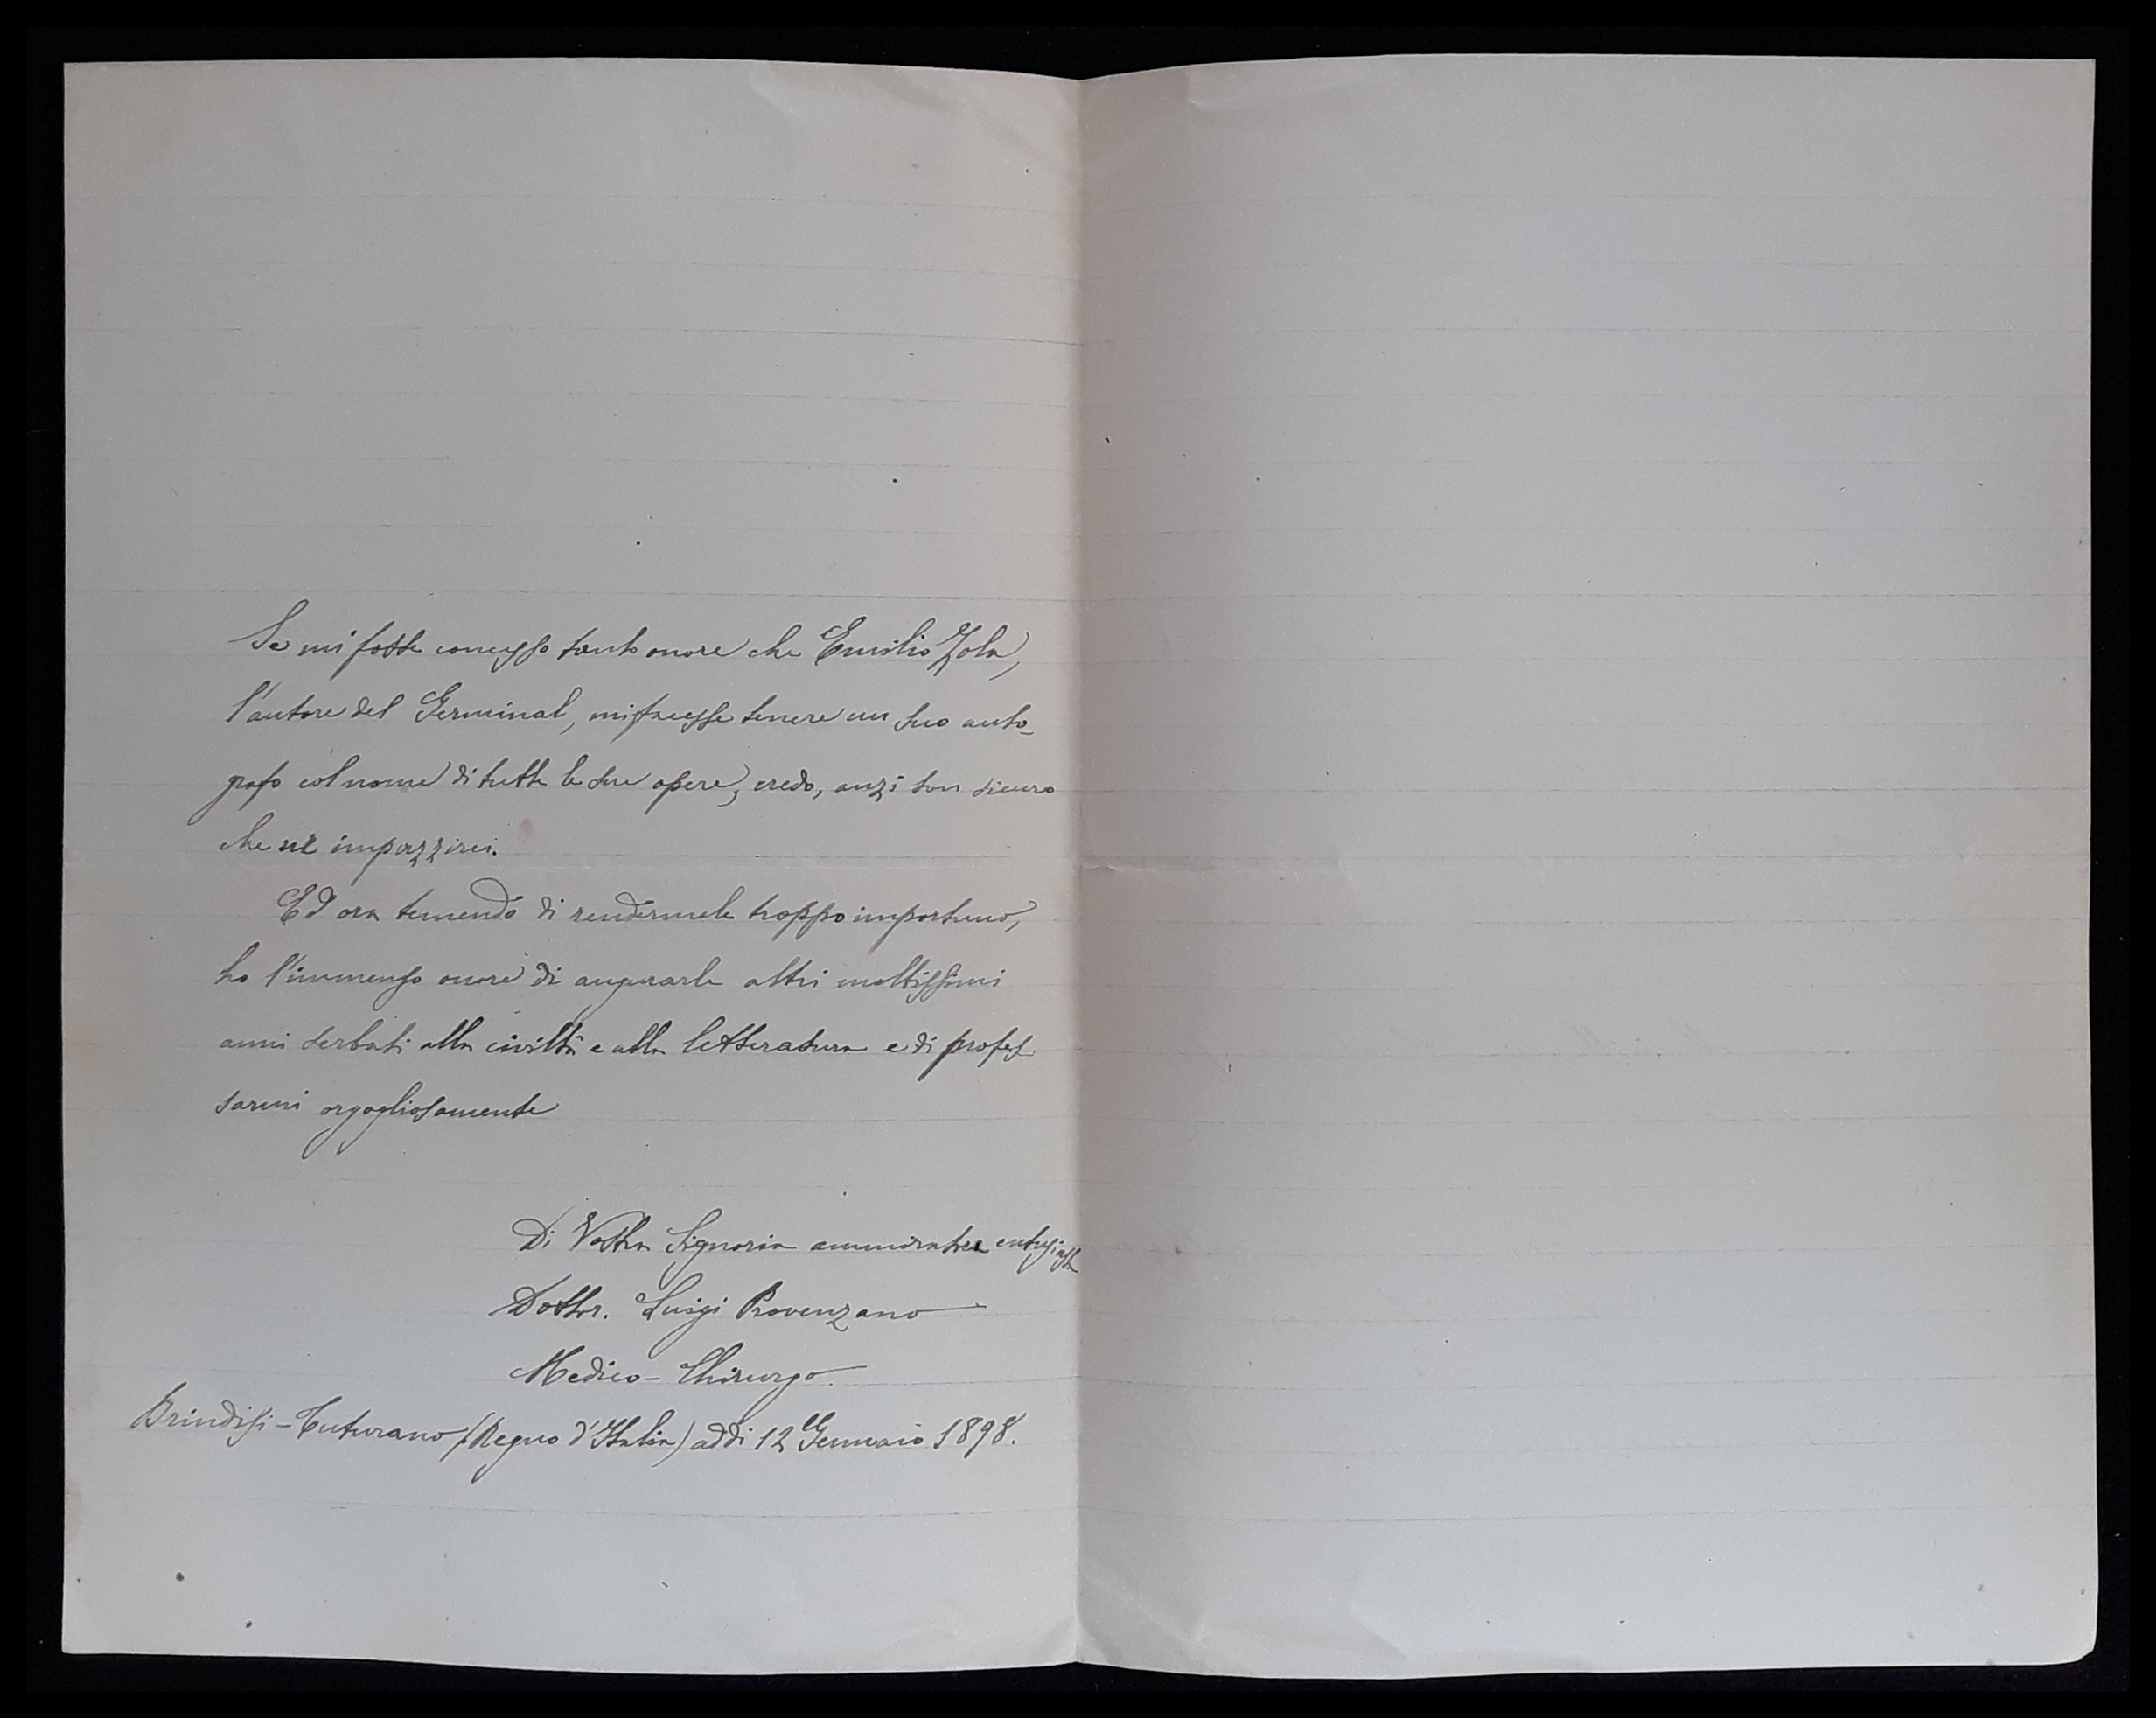 Se mi fosse concesso tanto onore che Emilio Zola,
l'autore del Germinal, mi facesse tenere un suo auto-
grafo col nome di tutte le sue opere, credo, anzi son sicuro
che ne impazzirei.
Ed ora temendo di rendermele troppo importuno,
ho l'immenso onore di augurarle altri moltissimi
anni serbati alla civiltà e alla letteratura e di profes
sarmi orgogliosamente
Di Vostra Signoria ammiratore entusiasta
Dottor. Luigi Provenzano
Medico-Chirurgo.
Brindisi-Tuturano (Regno d'Italia) addi 12 Gennaio 1898.